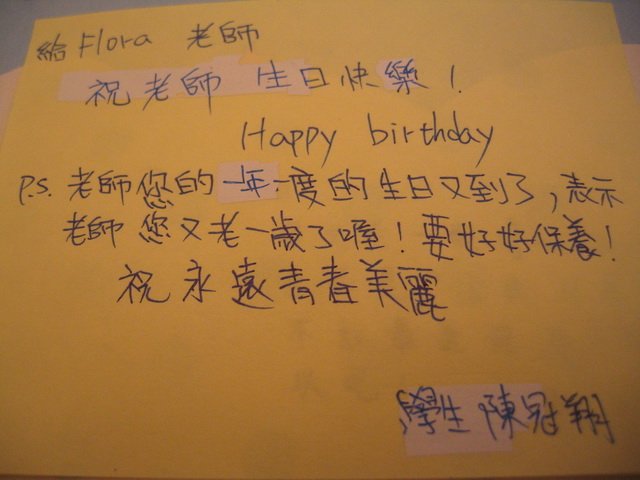 給Flora 老師
祝老師 生日快樂!
Happy birthday
P.S. 老師您的一年一度的生日又到了,表示
老師您又老一歲了喔!要好好保養!
祝永遠青春美麗
學生 陳冠翔